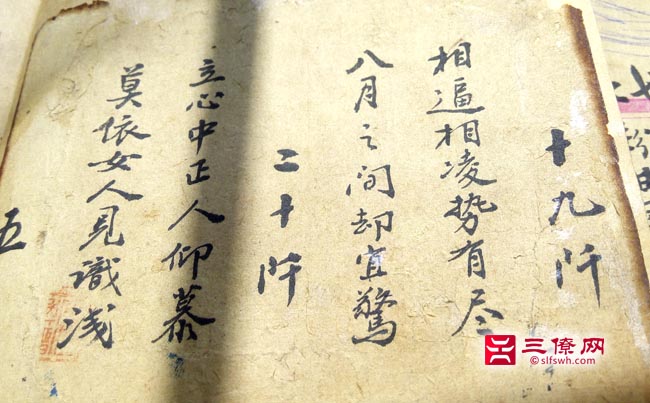 十九阡
相逼相凌势有尽
八月之间却宜驚
二十阡
立心中正人仰慕
莫依女人見識浅
五
三僚网
© slfswh.com